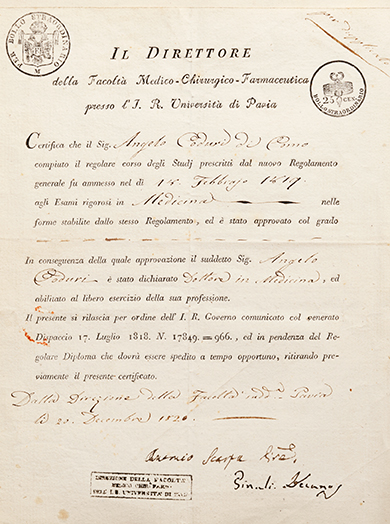 PER BOLLO STRAORDINARIO
M
25 CEN.
BOLLO STRAORDINARIO
IL DIRETTORE
della Facoltà Medico-Chirurgico-Farmaceutica
presso l'I. R. Università di Pavia
Certifica che il Sig. Angelo Poduri di Como
compiuto il regolare corso degli Studj prescritti dal nuovo Regolamento
generale fu ammesso nel dì 15 Febbrajo 1819
agli Esami rigorosi in Medicina nelle
forme stabilite dallo stesso Regolamento, ed è stato approvato col grado
In conseguenza della quale approvazione il suddetto Sig. Angelo
Poduri è stato dichiarato Dottore in Medicina, ed
abilitato al libero esercizio della sua professione.
Il presente si rilascia per ordine dell'I. R. Governo comunicato col venerato
Dispaccio 17. Luglio 1818. N. 17849.=966., ed in pendenza del Re-
golare Diploma che dovrà essere spedito a tempo opportuno, ritirando pre-
viamente il presente certificato.
Dalla Direzione della Facoltà Pavia
20. Dicembre 1820.
Antonio Scarpa
DIREZIONE DELLA FACOLTÀ
MEDICO CHIR. FARM.
DELL'I. R. UNIVERSITÀ DI PAV.